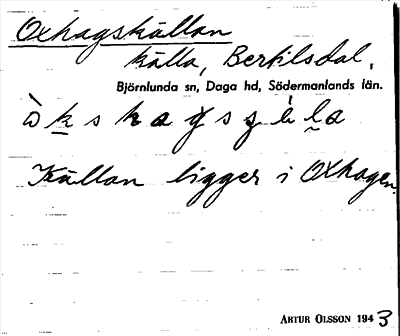 Oxhagskällan
källa, Berkilsdal,
Björnlunda sn, Daga hd, Södermanlands län.
Källan ligger i Oxhagen.
ARTUR OLSSON 1943